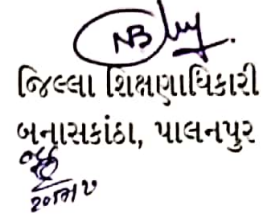 NB
જિલ્લા શિક્ષણાધિકારી
બનાસકાંઠા, પાલનપુર